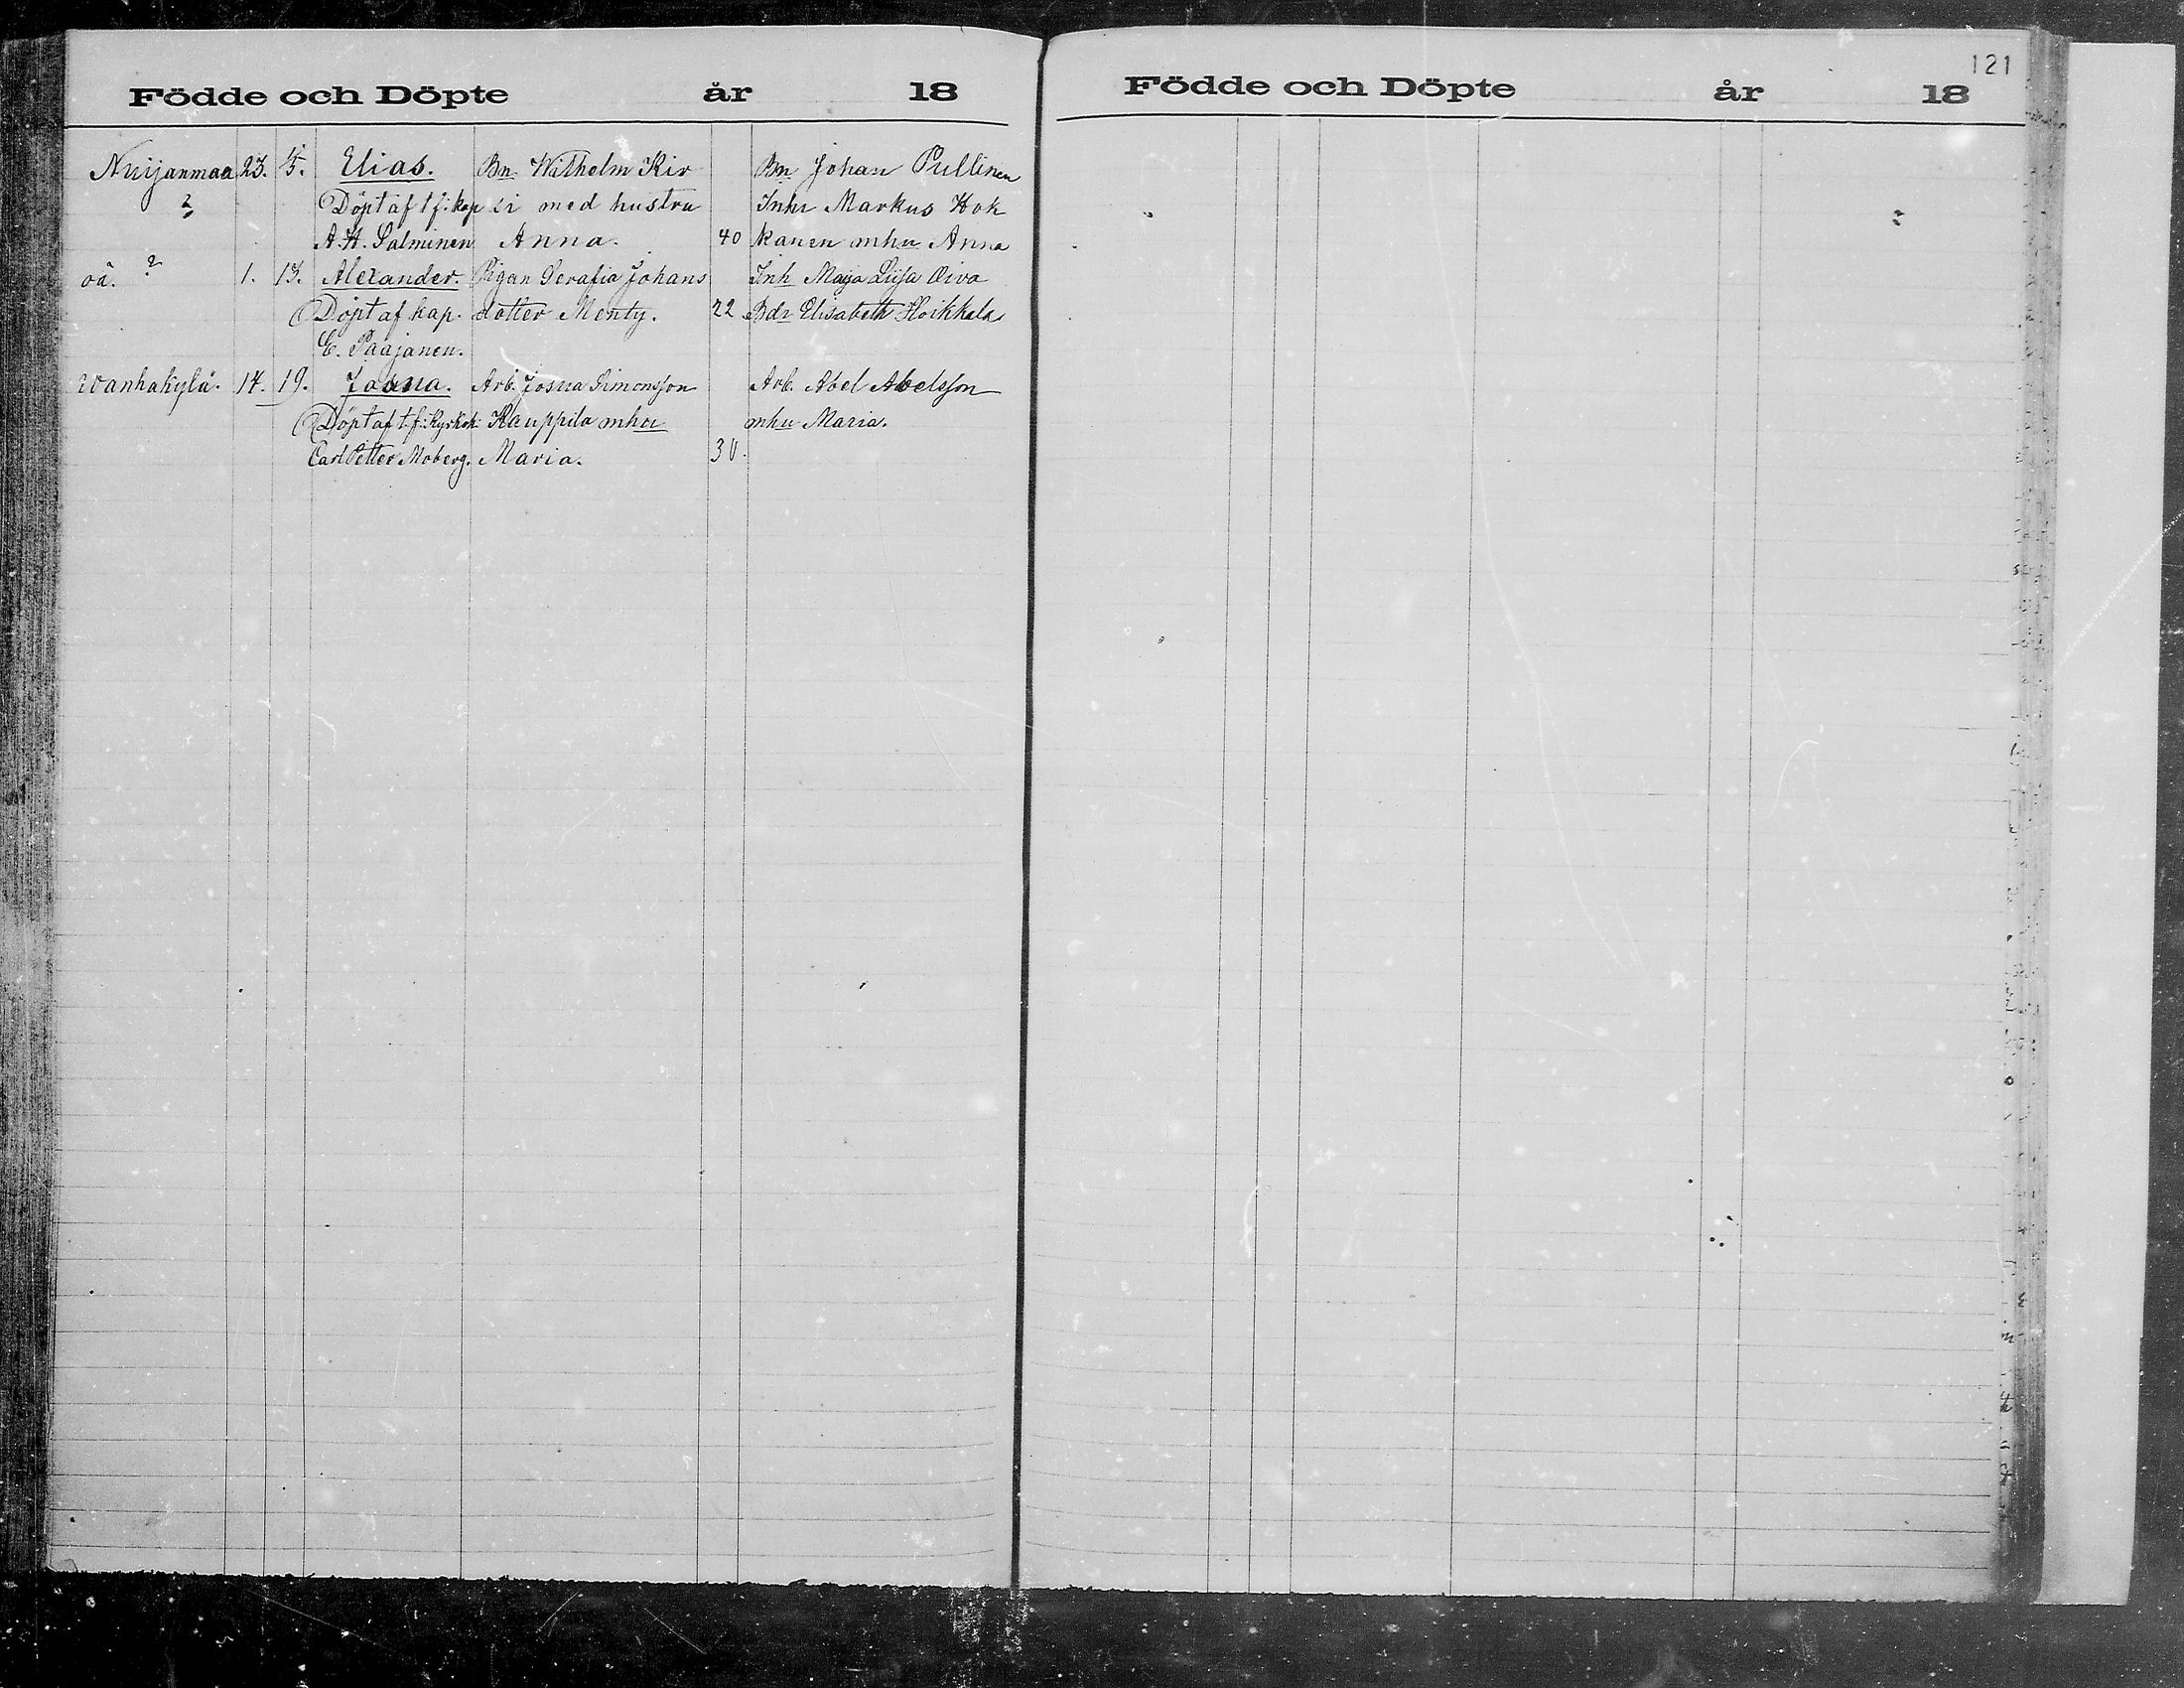 Födde och Döpte år 18
Nuijanmaa 23. 5. Elias. Bn. Wilhelm Kir Bn. Johan Pullinen
? Döpt af t f: kap si med hustru Inhr Markus Hok
A. H. Salminen Anna. 40 kanen mhu Anna
oä. ? 1. 13. Alexander. Pigan Serafia Johans Inh Maja Liisa Oiva
Döpt af kap. dotter Menty. 22 Bdr Elisabeth Hoikkala
E. Paajanen.
Wanhakylä. 14. 19. Josua. Arb. Josua Simonsson Arb. Abel Abelsson
Döpt af t.f: Kyrkoh: Kauppila mhu mhu Maria.
Carl Petter Moberg. Maria. 30.
121
Födde och Döpte år 18